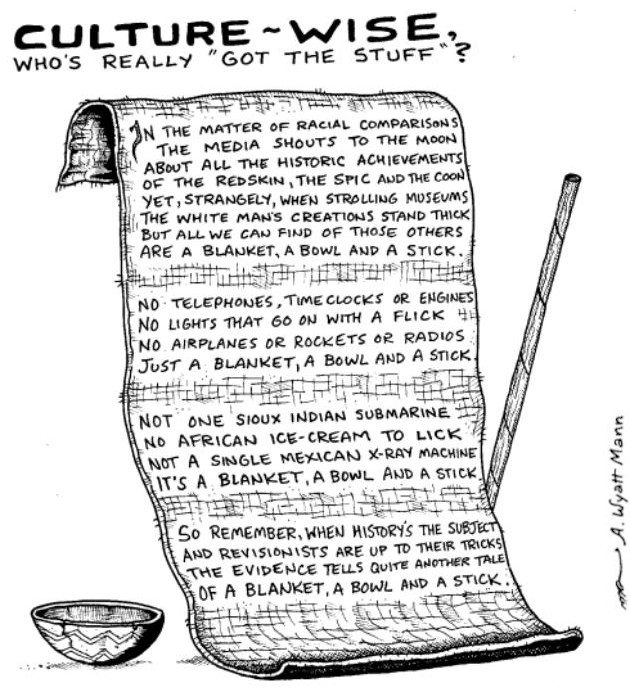 CULTURE~WISE,
WHO'S REALLY "GOT THE STUFF"?
IN THE MATTER OF RACIAL COMPARISONS
THE MEDIA SHOUTS TO THE MOON
ABOUT ALL THE HISTORIC ACHIEVEMENTS
OF THE REDSKIN, THE SPIC AND THE COON
YET, STRANGELY, WHEN STROLLING MUSEUMS
THE WHITE MAN'S CREATIONS STAND THICK
BUT ALL WE CAN FIND OF THOSE OTHERS
ARE A BLANKET, A BOWL AND A STICK.
NO TELEPHONES, TIME CLOCKS OR ENGINES
NO LIGHTS THAT GO ON WITH A FLICK
NO AIRPLANES OR ROCKETS OR RADIOS
JUST A BLANKET, A BOWL AND A STICK.
NOT ONE SIOUX INDIAN SUBMARINE
NO AFRICAN ICE-CREAM TO LICK
NOT A SINGLE MEXICAN X-RAY MACHINE
IT'S A BLANKET, A BOWL AND A STICK
SO REMEMBER, WHEN HISTORY'S THE SUBJECT
AND REVISIONISTS ARE UP TO THEIR TRICKS
THE EVIDENCE TELLS QUITE ANOTHER TALE
OF A BLANKET, A BOWL AND A STICK.
A. Wyatt Mann